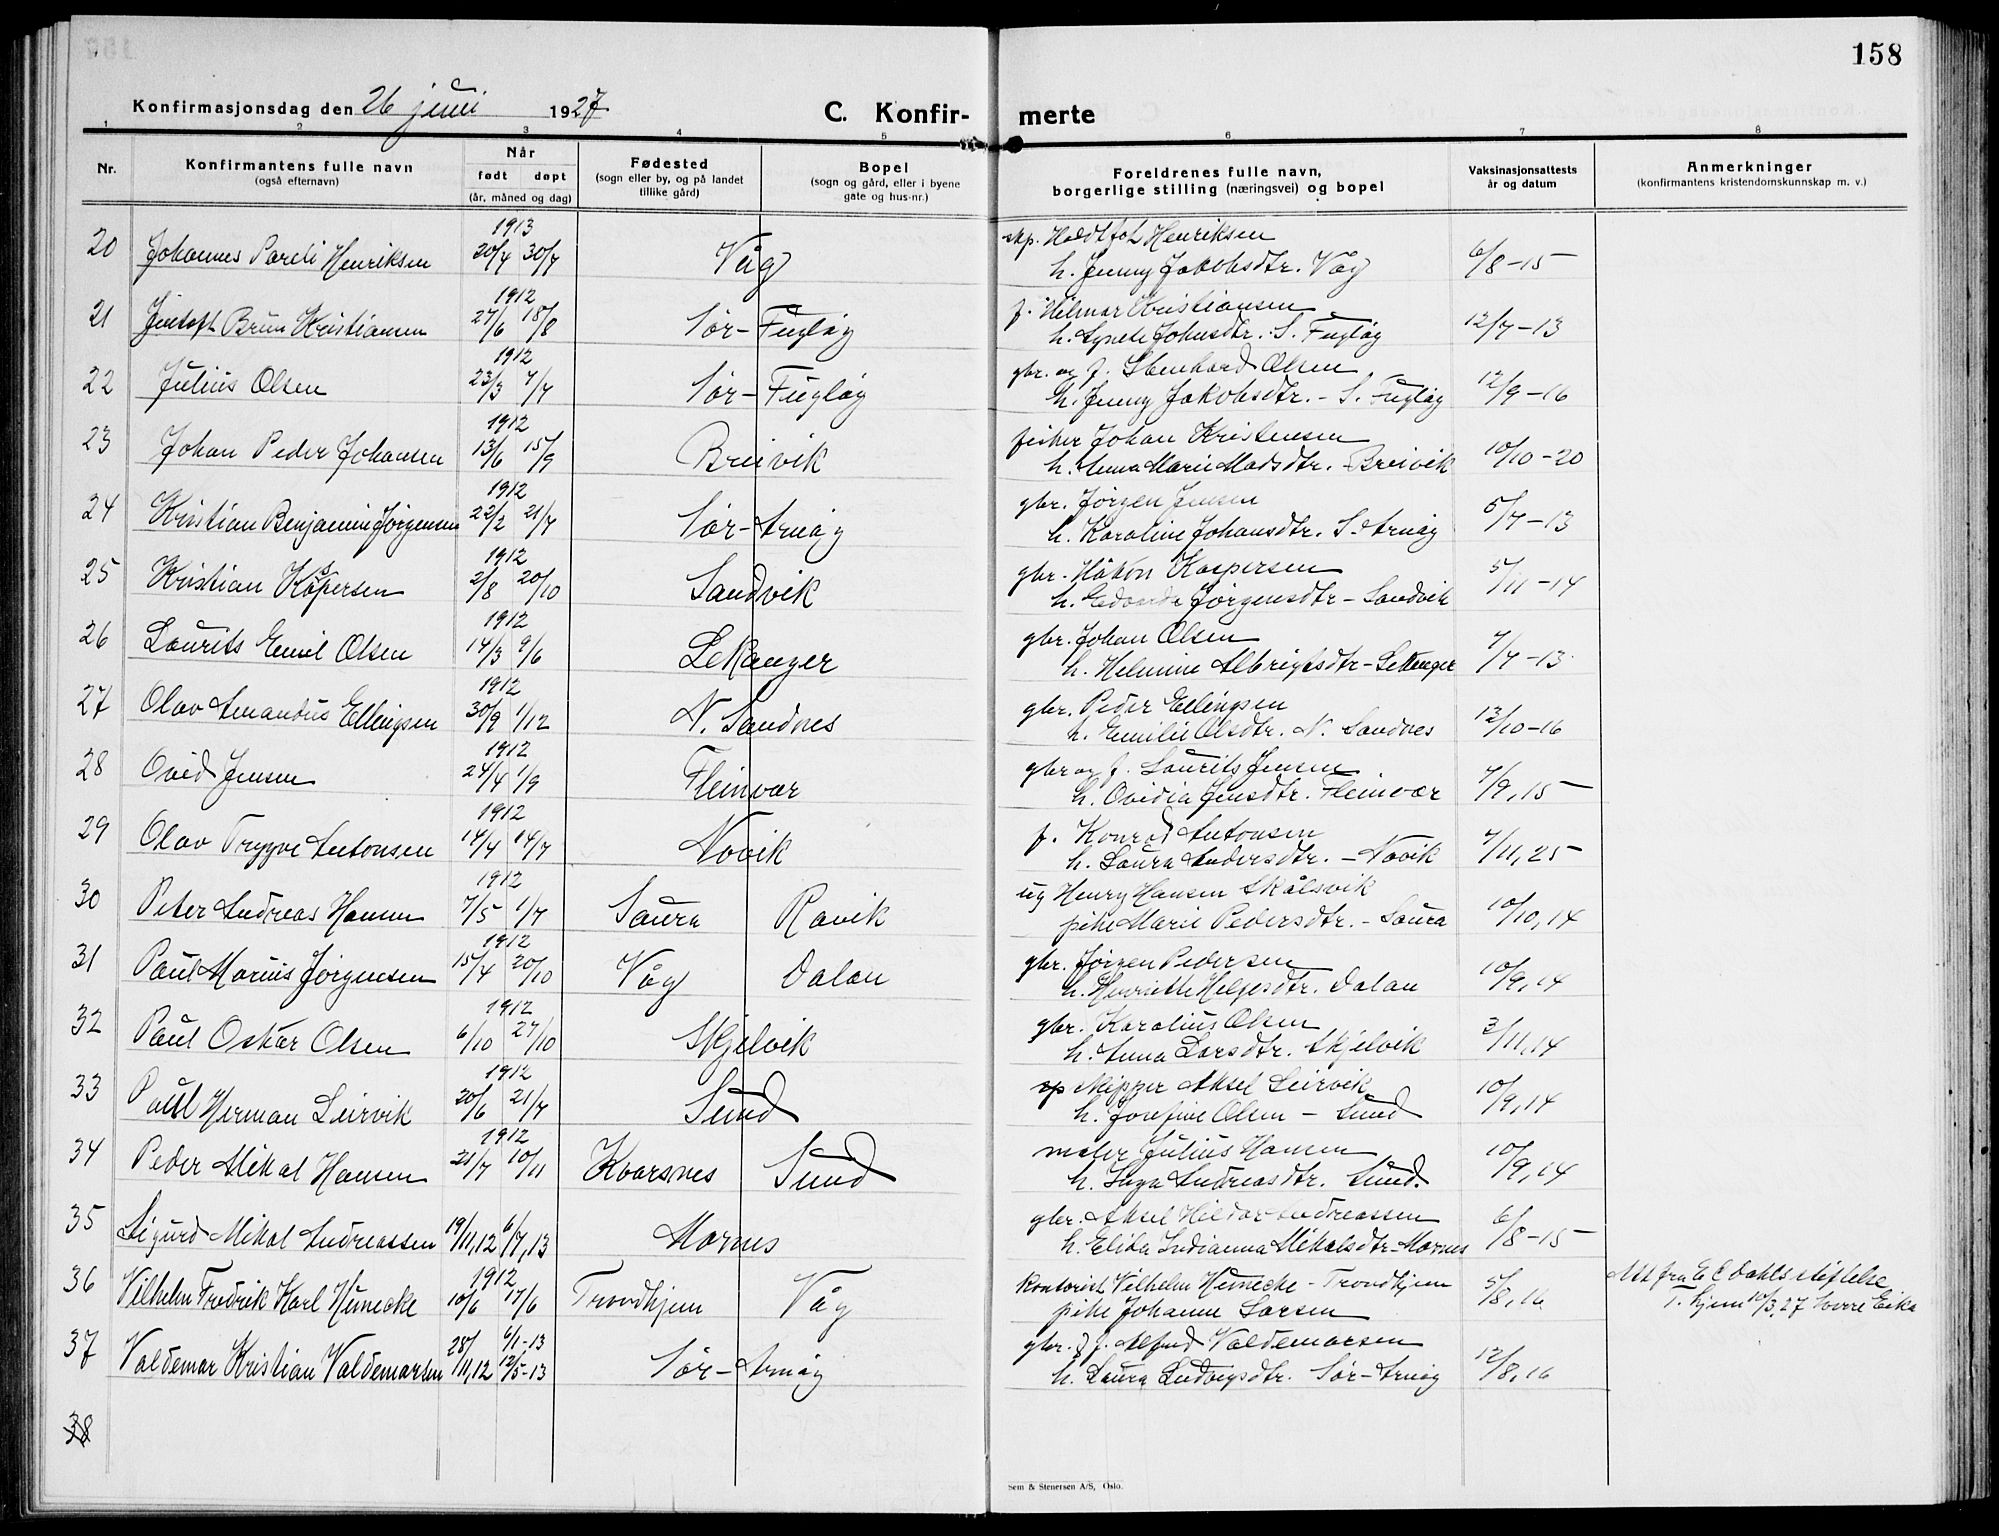 158
Konfirmasjonsdag den 26 juni 1927
C. Konfir- merte
1 2 3 4 5 6 7 8
Nr.
Konfirmantens fulle navn
(også efternavn)
Når
født døpt
(år, måned og dag)
Fødested
(sogn eller by, og på landet
tillike gård)
Bopel
(sogn og gård, eller i byene
gate og hus-nr.)
Foreldrenes fulle navn,
borgerlige stilling (næringsvei) og bopel
Vaksinasjonsattests
år og datum
Anmerkninger
(konfirmantens kristendomskunnskap m. v.)
1913
20 Johannes Pareli Henriksen 20/4 30/7 Våg
skp. Hartfol Henriksen
h. Jenny Jakobsdtr. Våg 6/8-15
1912
21 Jentoft Brun Kristiansen 27/6 18/8 Sør-Fugløy
f. Hilmar Kristiansen
h. Johnsdtr. S. Fugløy 12/7-13
1912
22 Julius Olsen 23/3 7/7 Sør-Fugløy
gbr. og f. Olsen
h. Jenny Jakobsdtr. - S. Fugløy 12/9-16
1912
23 Johan Peder Johansen 13/6 15/9 Breivik
fisker Johan Kristensen
h. Anna Marie Madsdtr. Breivik 10/10-20
1912
24 Kristian Benjamin Jørgensen 22/2 21/7 Sør-Arnøy
gbr. Jørgen Jensen
h. Karoline Johansdtr. S. Arnøy 5/7-13
1912
25 Kristian Kaspersen 2/8 20/10 Sandvik
gbr. Håkon Kaspersen
h. Edvarda Jørgensdtr - Sandvik 5/11-14
1912
26 Laurits Emil Olsen 14/3 9/6 Lekanger
gbr. Johan Olsen
h. Helmine Albrigtsdtr - Lekanger 7/7-13
1912
27 Olav Amandus Ellingsen 30/9 1/12 N. Sandnes
gbr. Peder Ellingsen
h. Emilie Olsdtr. N. Sandnes 12/10-16
1912
28 Ovid Jensen 24/4 1/9 Fleinvær
gbr og f. Laurits Jensen
h. Ovidia Jensdtr. Fleinvær 7/9, 15
1912
29 Olav Trygve Antonsen 14/4 14/7 Novik
f. Konrad Antonsen
h. Laura Andersdtr. - Novik 7/11, 25
1912
30 Peter Andreas Hansen 7/5 1/7 Saura Ravik
ug Henry Hansen Skålsvik
pike Marie Pedersdtr. - Saura 10/10, 14
1912
31 Paul Marius Jørgensen 15/4 20/10 Våg Dalan
gbr. Jørgen Pedersen
h. Henriette Helgesdtr. Dalan 10/9, 14
1912
32 Paul Oskar Olsen 6/10 27/10 Skjelvik
gbr. Karolius Olsen
h. Anna Larsdtr. Skjelvik 3/11, 14
1912
33 Paul Herman Leirvik 20/6 21/7 Sund
sp skipper Aksel Leirvik
h. Josefine Olsen - Sund 10/9, 14
1912
34 Peder Mikal Hansen 21/7 10/11 Kvarsnes Sund
maler Julius Hansen
h. Inga Andreasdtr. Sund. 10/9, 14
35 Sigurd Mikal Andreassen 19/11, 12 6/7, 13 Marnes
gbr. Aksel Hildor Andreassen
h. Elida Indianna Mikalsdtr - Marnes 6/8-15
1912
36 Vilhelm Fredrik Karl Heinecke 10/6 17/6 Trondhjem Våg
kontorist Vilhelm Heinecke - Trondhjem
pike Johanne Larsen 5/8, 16
Att fra E. C. Dahls stiftelse
T.hjem 10/3, 27 Sverre Eika
37 Valdemar Kristian Valdemarsen 28/11, 12 6/1-13 12/5-13 Sør-Arnøy
gbr. & f. Alfred Valdemarsen
h. Laura Ludvigsdtr. Sør-Arnøy 12/8, 16
38
Sem & Stenersen A/S, Oslo.